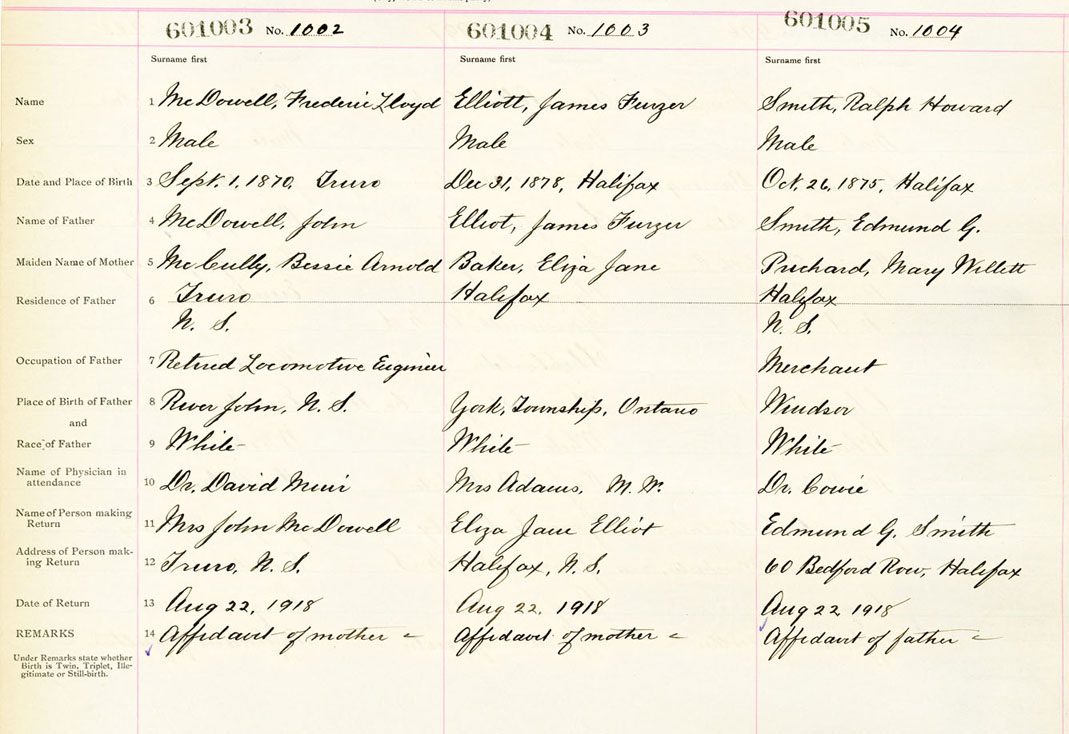 601003 No. 1002 601004 No. 1003 601005 No. 1004
Surname first Surname first Surname first
Name 1 McDowell, Frederic Lloyd Elliott, James Furzer Smith, Ralph Howard
Sex 2 Male Male Male
Date and Place of Birth 3 Sept. 1, 1870, Truro Dec 31, 1878, Halifax Oct. 26, 1875, Halifax
Name of Father 4 McDowell, John Elliot, James Furzer Smith, Edmund G.
Maiden Name of Mother 5 McCully, Bessie Arnold Baker, Eliza Jane Mary Willett
Residence of Father 6 Truro Halifax Halifax
N. S. N. S.
Occupation of Father 7 Retired Locomotive Engineer Merchant
Place of Birth of Father 8 River John, N. S. York, Township, Ontario Windsor
and
Race of Father 9 White White White
Name of Physician in
attendance 10 Dr. David Muir Mrs Adams, M. W. Dr. Cowie
Name of Person making
Return 11 Mrs John McDowell Eliza Jane Elliot Edmund G. Smith
Address of Person mak-
ing Return 12 Truro, N. S. Halifax, N. S. 60 Bedford Row, Halifax
Date of Return 13 Aug 22, 1918 Aug 22, 1918 Aug 22 1918
REMARKS 14 Affidavit of mother Affidavit of mother Affidavit of father
Under Remarks state whether
Birth is Twin, Triplet, Ille-
gitimate or Still-birth.